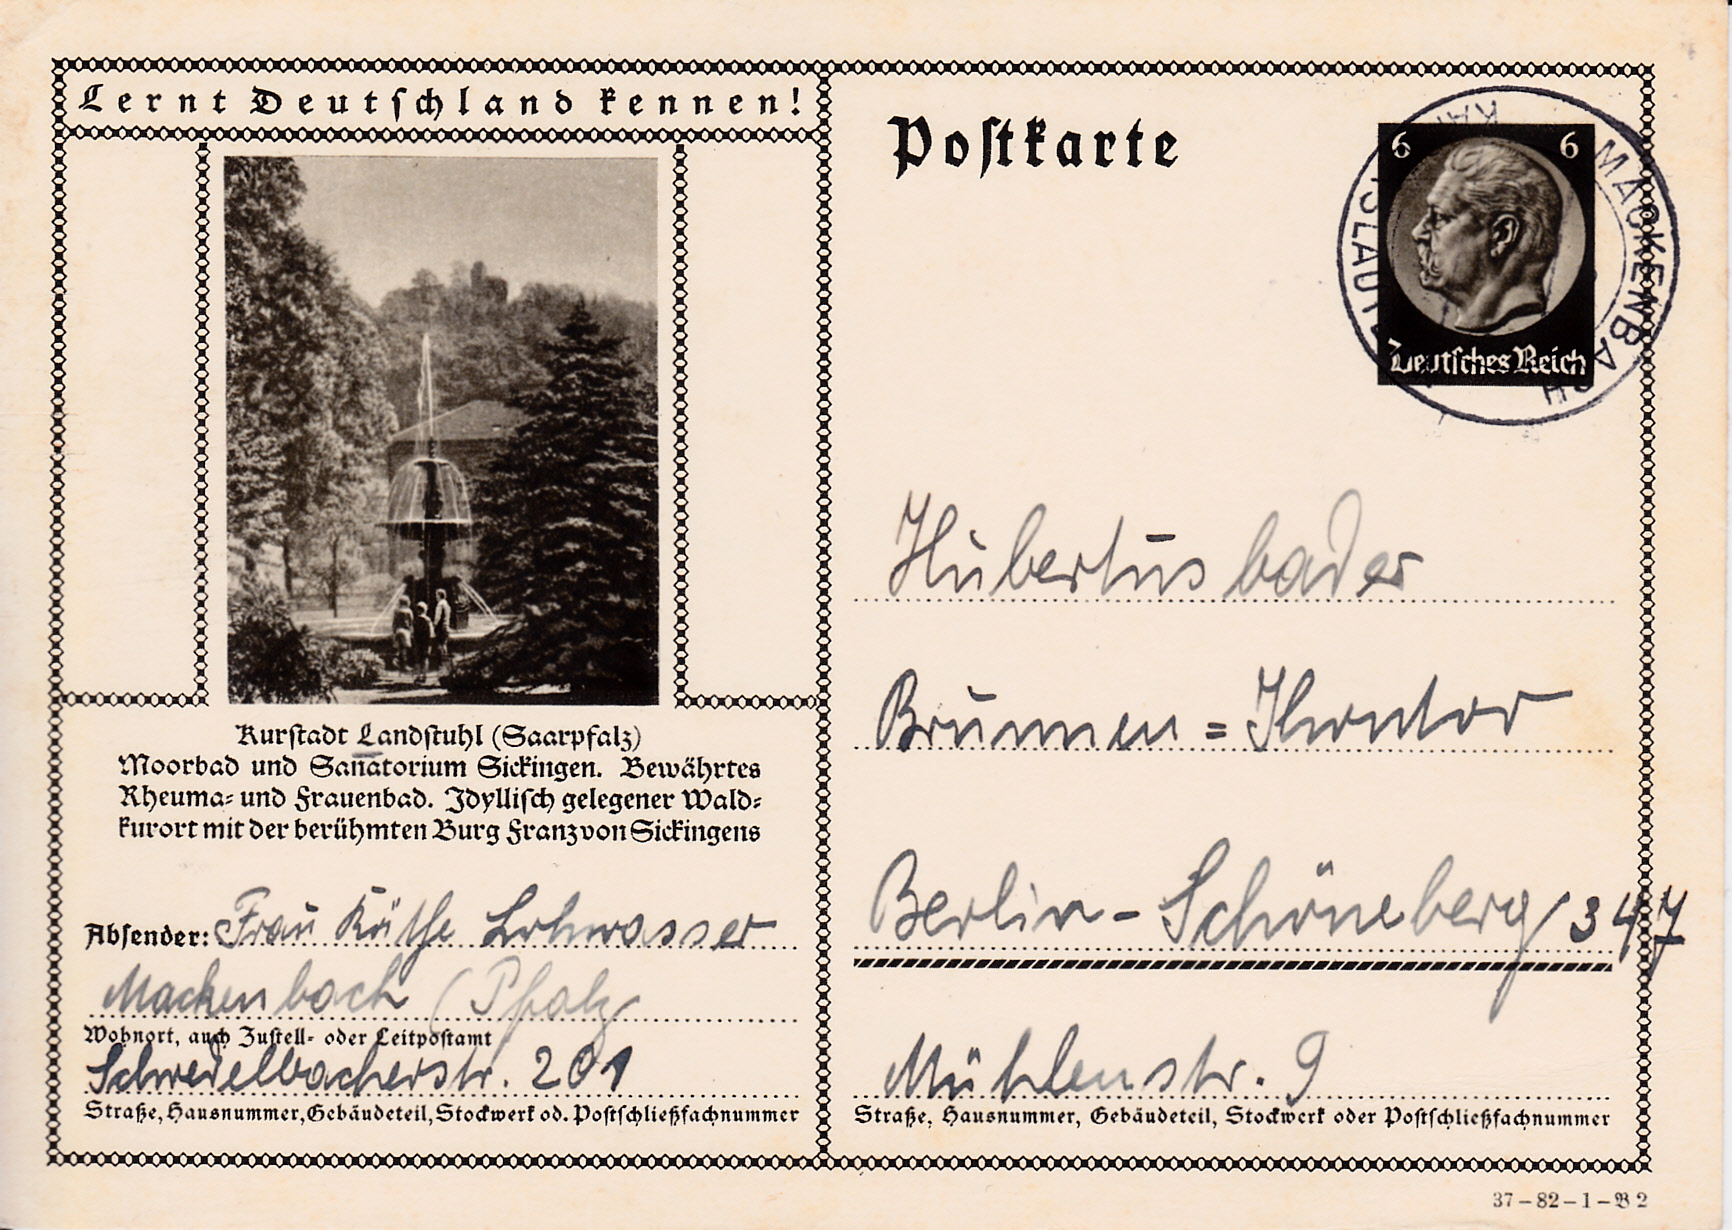 Lernt Deutschland kennen!
Kurstadt Landstuhl (Saarpfalz)
Moorbad und Sanatorium Sickingen. Bewährtes
Rheuma- und Frauenbad. Idyllisch gelegener Wald-
kurort mit der berühmten Burg Franz von Sickingens
Absender: Frau Käthe Lohwasser
Mackenbach (Pfalz
Wohnort, auch Zustell- oder Leitpostamt
Schwedelbacherstr. 201
Straße, Hausnummer, Gebäudeteil, Stockwerk od. Postschließfachnummer
Postkarte
6 6
Deutsches Reich
MACKENBACH
Hubertusbader
Brunnen-Kontor
Berlin-Schöneberg / 347
Mühlenstr. 9
Straße, Hausnummer, Gebäudeteil, Stockwerk oder Postschließfachnummer
37-82-1-B 2